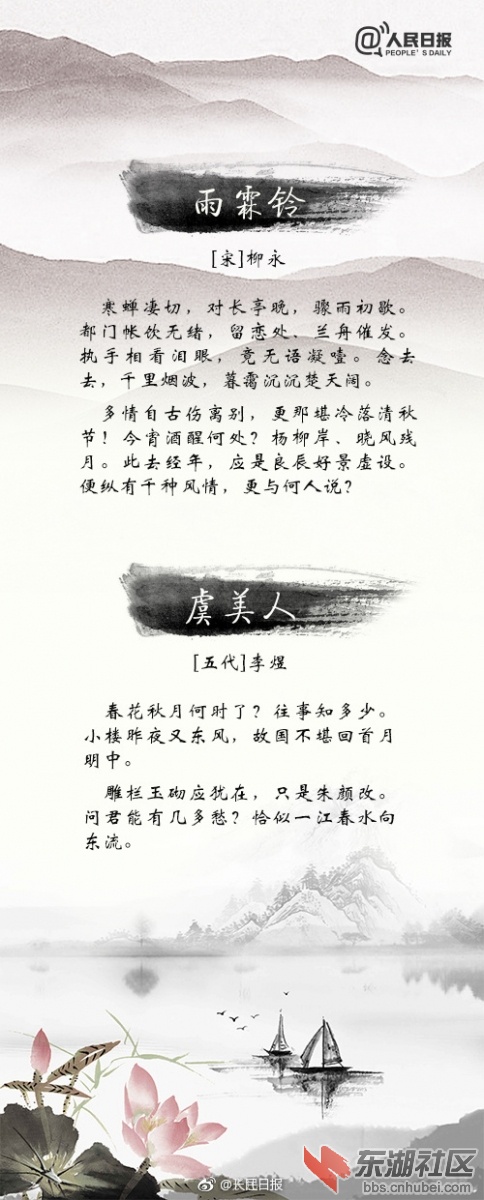 @人民日报
PEOPLE'S DAILY
雨霖铃
[宋]柳永
寒蝉凄切，对长亭晚，骤雨初歇。
都门帐饮无绪，留恋处、兰舟催发。
执手相看泪眼，竟无语凝噎。念去
去，千里烟波，暮霭沉沉楚天阔。
多情自古伤离别，更那堪冷落清秋
节！今宵酒醒何处？杨柳岸、晓风残
月。此去经年，应是良辰好景虚设。
便纵有千种风情，更与何人说？
虞美人
[五代]李煜
春花秋月何时了？往事知多少。
小楼昨夜又东风，故国不堪回首月
明中。
雕栏玉砌应犹在，只是朱颜改。
问君能有几多愁？恰似一江春水向
东流。
@人民日报
东湖社区
bbs.cnhubei.com